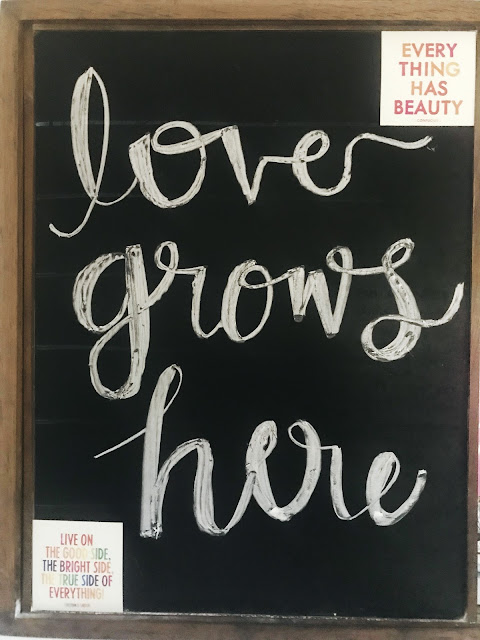 EVERY
THING
HAS
BEAUTY
love
grows
here
LIVE ON
THE GOOD SIDE,
THE BRIGHT SIDE,
THE TRUE SIDE OF
EVERYTHING!